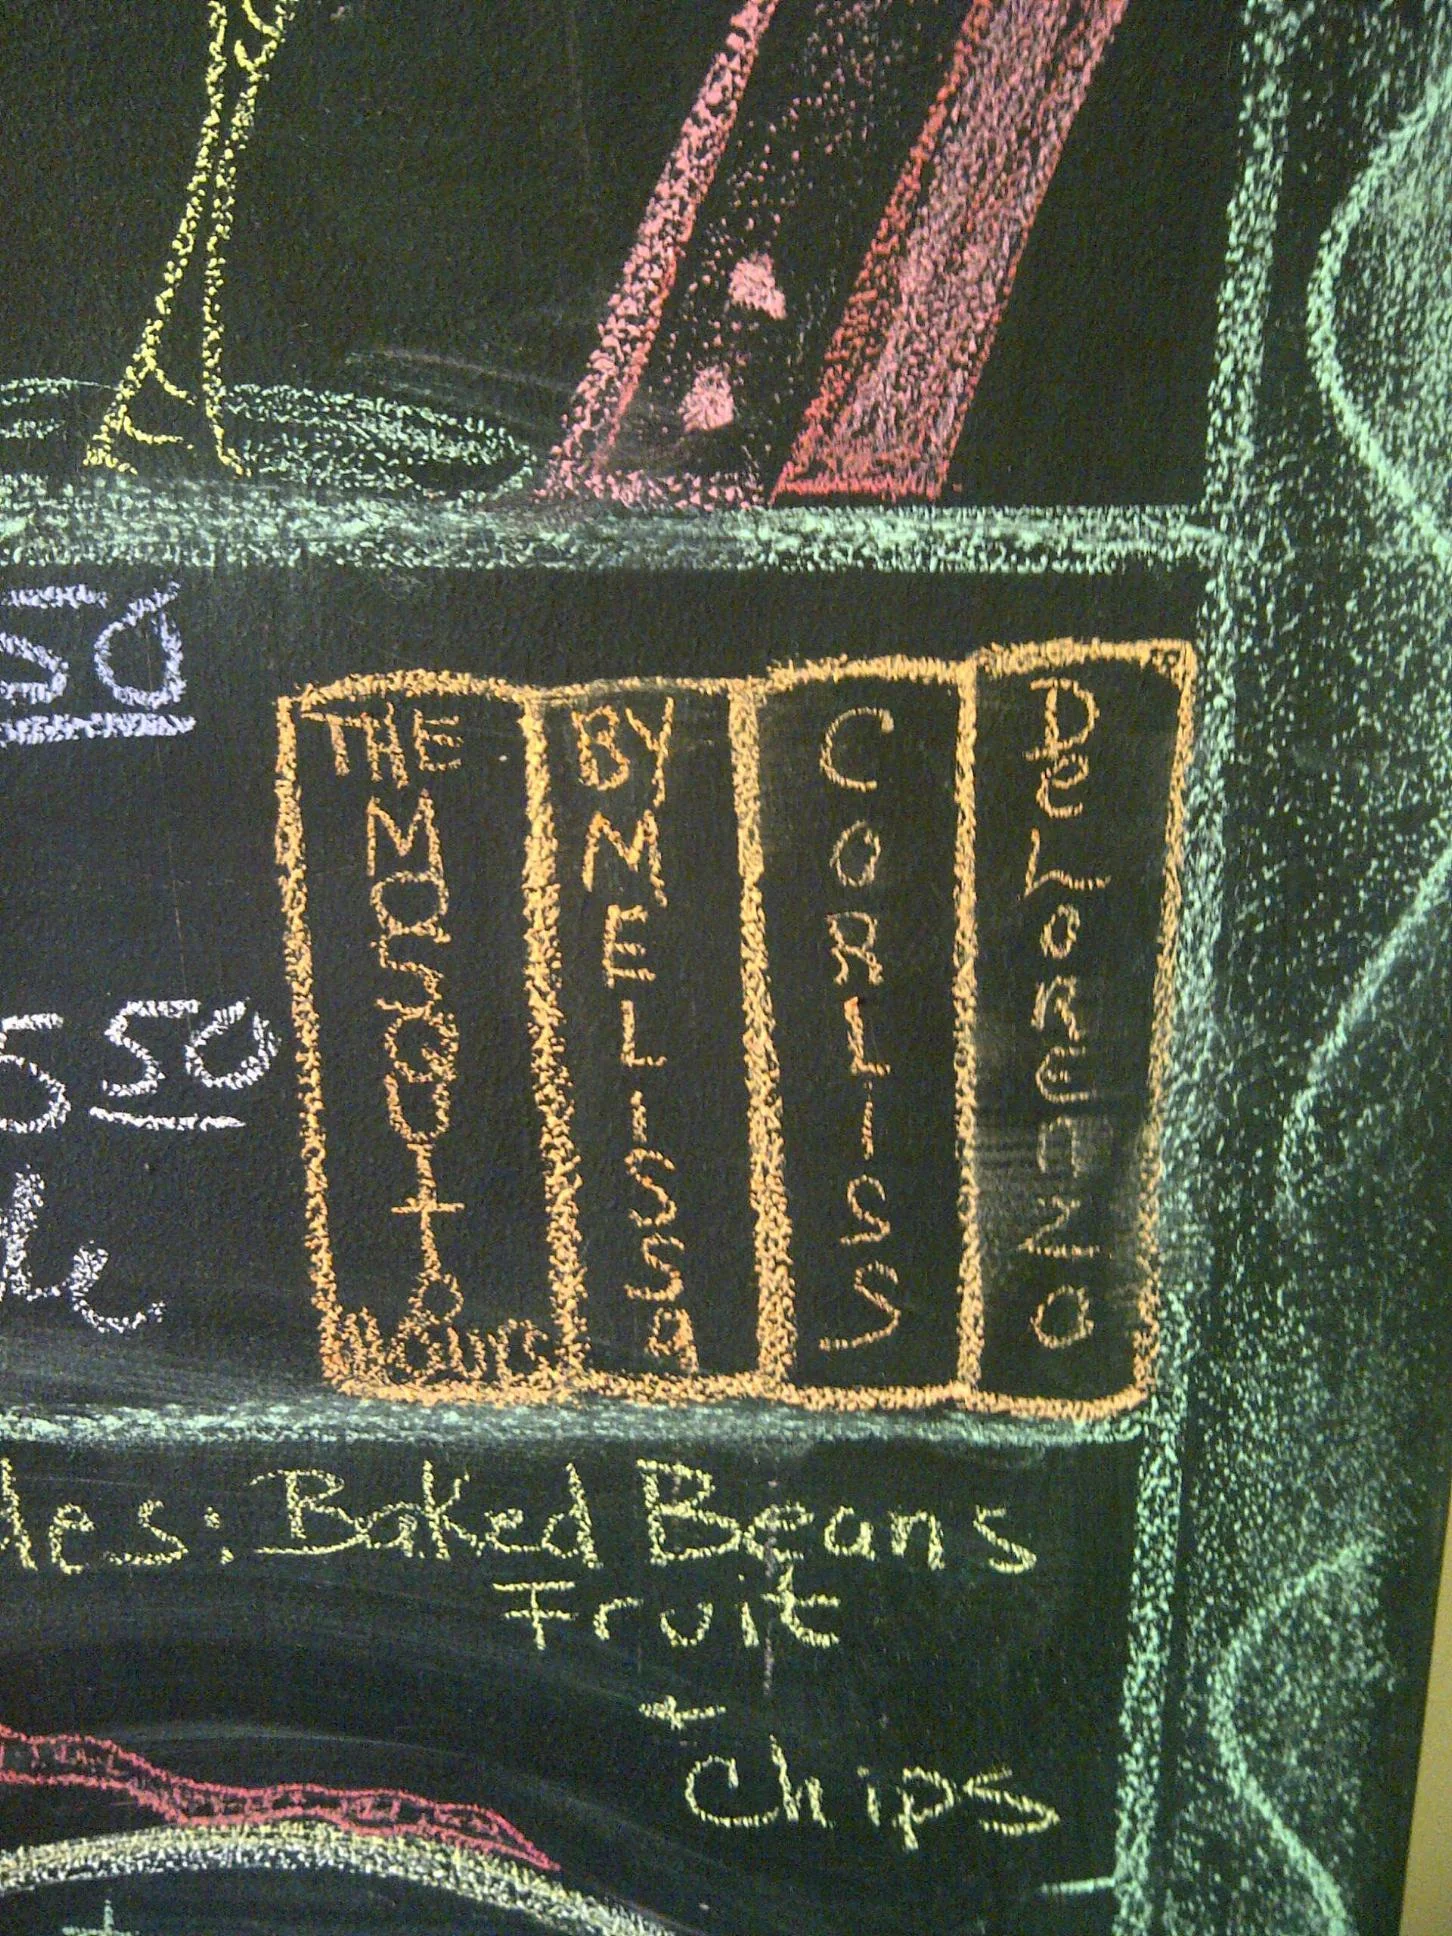 50
5 50
THE
MOSQUITO
HOUR
BY
MELISSA
CORLISS
DeLORENZO
des: Baked Beans
Fruit
+
Chips